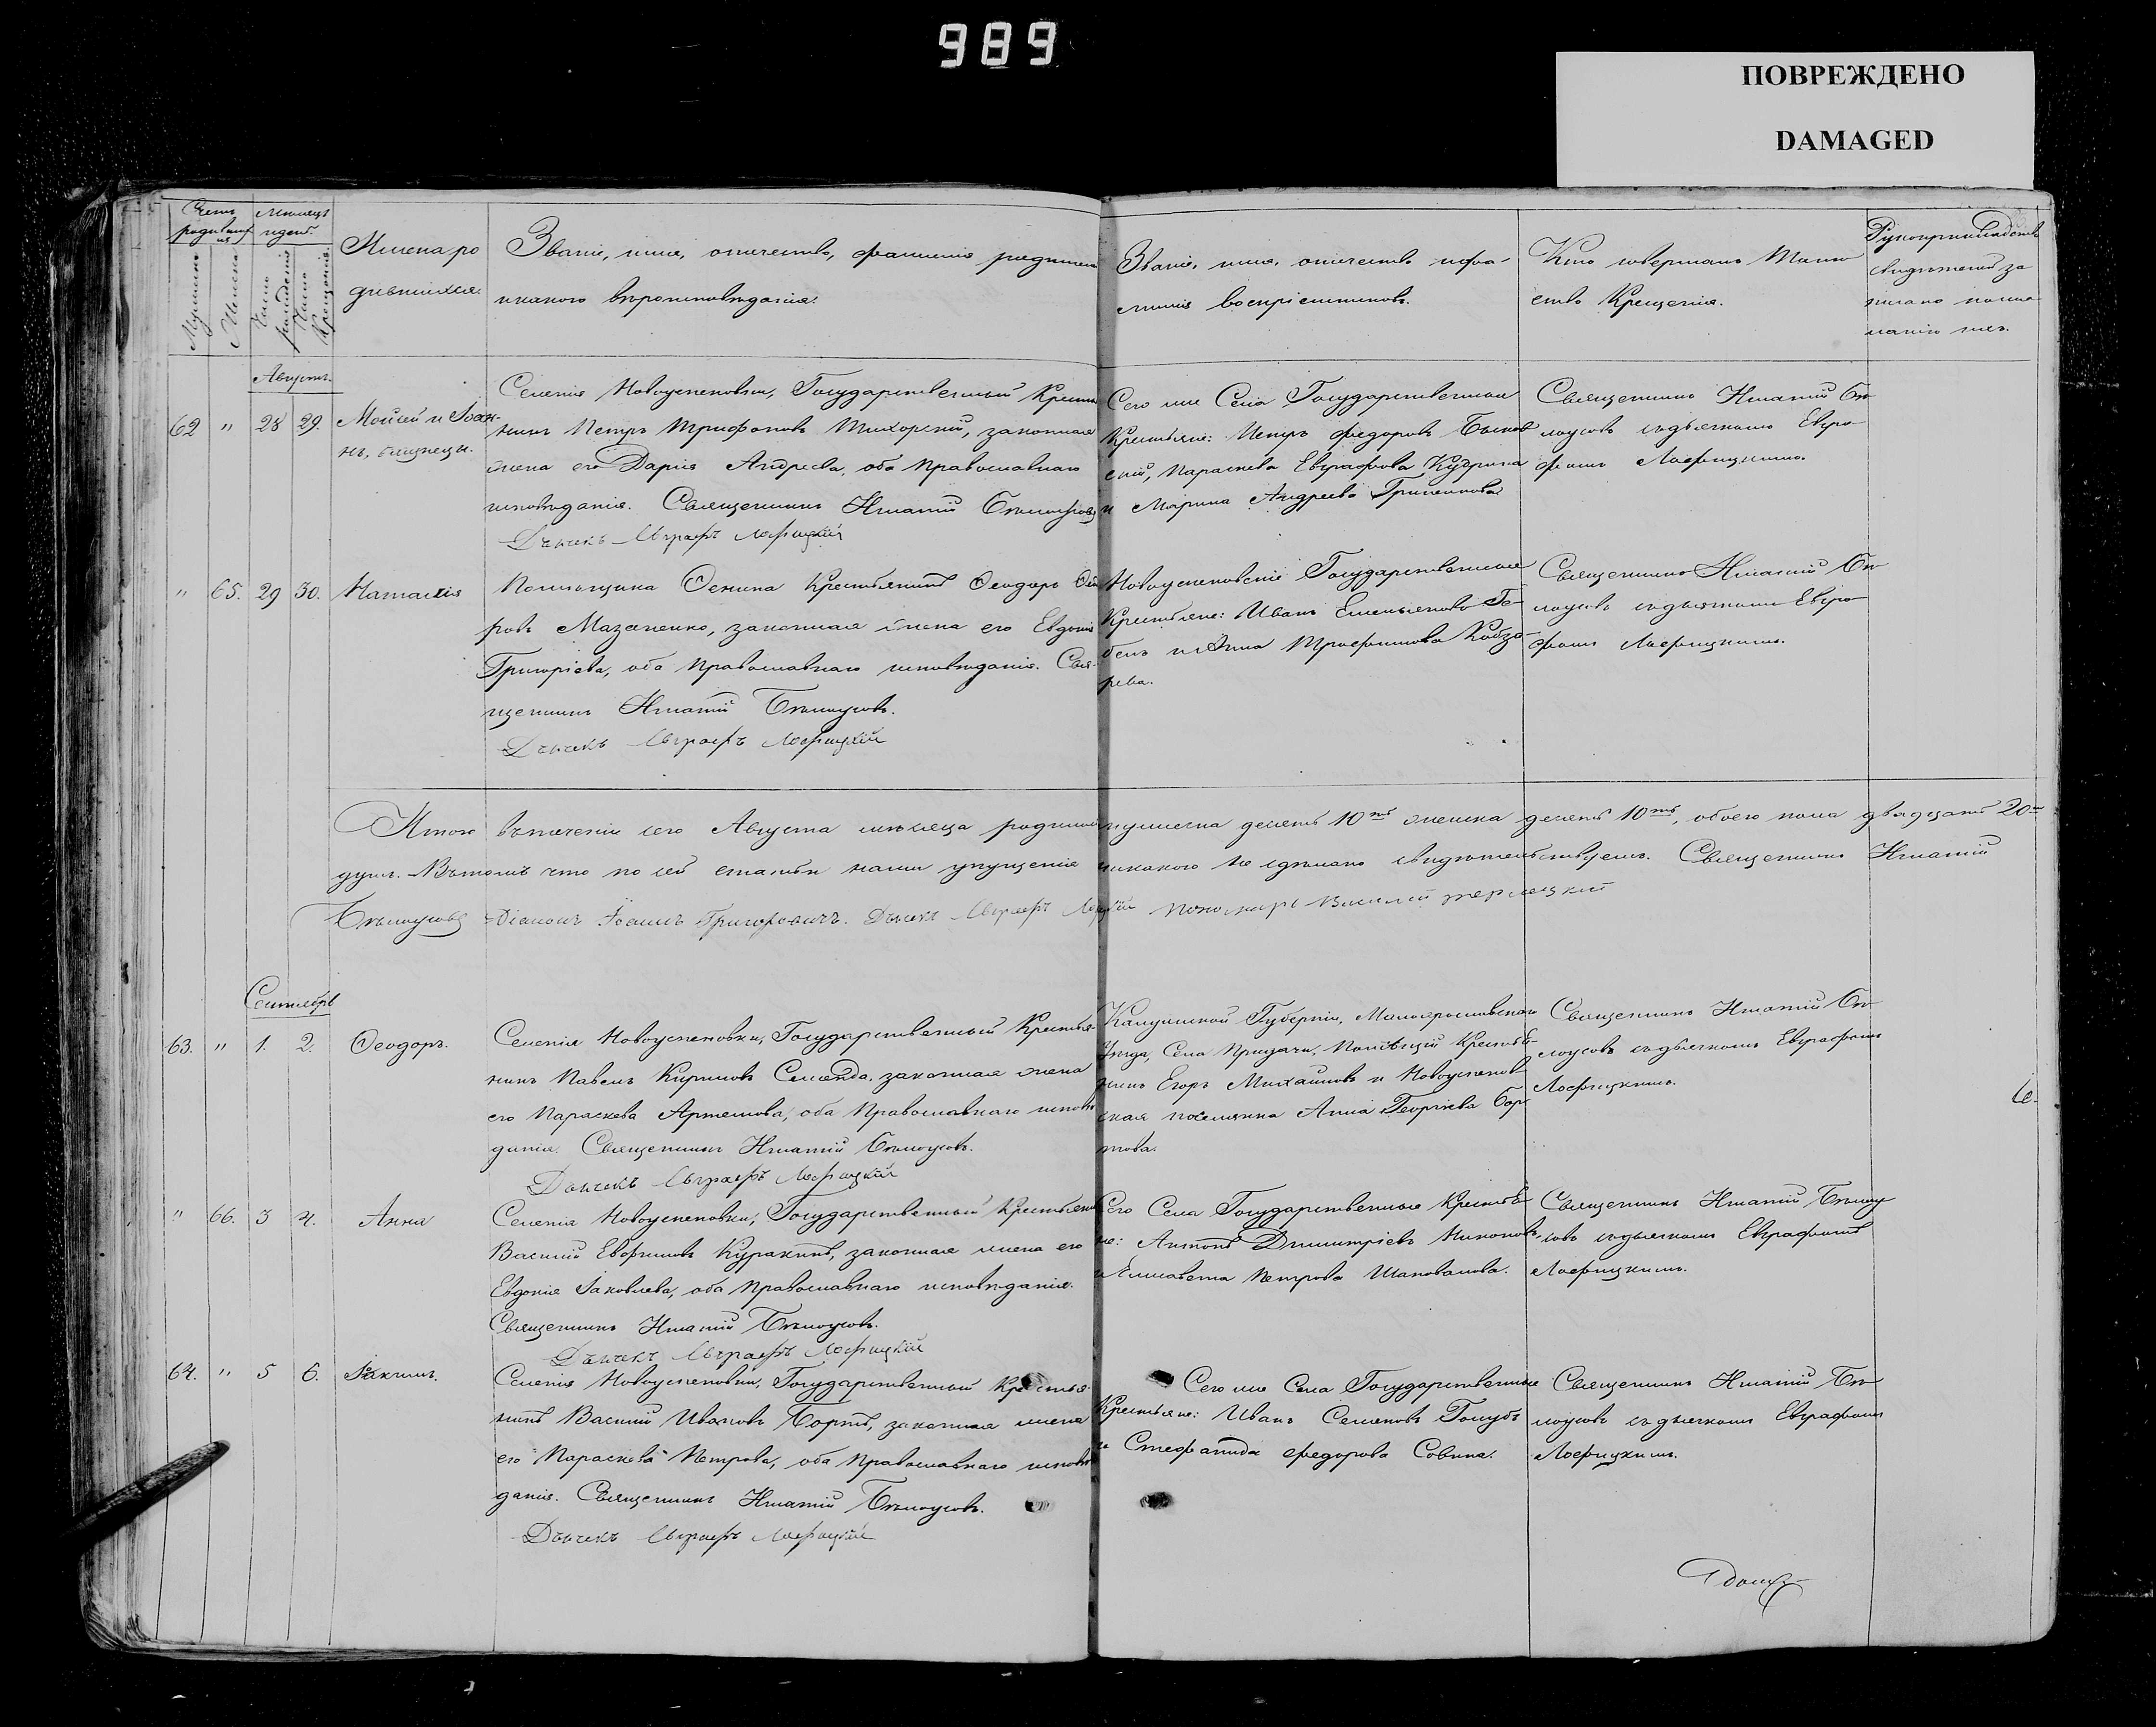 989
ПОВРЕЖДЕНО
DAMAGED
Счетъ родившихся
Мужеска
Женска
Месяцъ и день
Число рожденія
Число Крещенія
Имена родившихся.
Званіе, имя, отчество, фамилія родителей
и какого вѣроисповѣданія.
Званіе, имя, отчество и фа-
милія воспріемниковъ.
Кто совершалъ Таин-
ство Крещенія.
Рукоприкладство
свидѣтелей за
писано по жела
нію ихъ.
Августъ.
62 " 28 29. Моисей и Іоан-
нъ, близнецы.
Селенія Новоуспеновки, Государственный Крестья
нинъ Петръ Трифоновъ Тихорскій, законная
жена его Дарія Андреева, оба Православнаго
исповѣданія. Священникъ Игнатій Бѣлоусовъ
Дьячекъ Евграфъ Лофицкій
Сего же Села Государственные
Крестьяне: Петръ Федоровъ Быков
скій, Параскева Евграфова Кудрина
и Марина Андреева Гриценкова
Священникъ Игнатій Бѣ
лоусовъ съ дьячкомъ Евгра
фомъ Лофицкимъ.
" 65. 29 30. Наталія
Помѣщика Крестьянинъ Ѳеодоръ Ѳео
ровъ Мазаненко, законная жена его Евдокія
Григоріева, оба Православнаго исповѣданія. Свя-
щенникъ Игнатій Бѣлоусовъ.
Дьячекъ Евграфъ Лофицкій
Новоуспеновскіе Государственные
Крестьяне: Иванъ Емельяновъ Ге-
бель и Анна Трофимова Кобзо-
рева.
Священникъ Игнатій Бѣ
лоусовъ съ дьячкомъ Евгра
фомъ Лофицкимъ.
Итого въ теченіи сего Августа мѣсяца родилось мужеска десять 10ть женска десять 10ть, обоего пола двадцать 20ть
душъ. Въ томъ что по сей статьи нами упущенія никакого не сдѣлано свидѣтельствуемъ. Священникъ Игнатій
Бѣлоусовъ Діаконъ Іоаннъ Григоровичъ. Дьячекъ Евграфъ Лофицкій Пономарь Василій
Сентябрь
63. " 1. 2. Ѳеодоръ.
Селенія Новоуспеновки, Государственный Крестья-
нинъ Павелъ Кириловъ Семенда, законная жена
его Параскева Артемова, оба Православнаго исповѣ
данія. Священникъ Игнатій Бѣлоусовъ.
Дьячекъ Евграфъ Лофицкій
Калужской Губерніи, Малоярославскаго
Уѣзда, Села Придачи, Помѣщичій Крестья-
нинъ Егоръ Михайловъ и Новоуспенов
ская поселянка Анна Георгіева Бор
това.
Священникъ Игнатій Бѣ
лоусовъ съ дьячкомъ Евграфомъ
Лофицкимъ.
" 66. 3 4. Анна
Селенія Новоуспеновки, Государственный Крестьянинъ
Василій Евфимовъ Куракинъ, законная жена его
Евдокія Іаковлева, оба Православнаго исповѣданія.
Священникъ Игнатій Бѣлоусовъ.
Дьячекъ Евграфъ Лофицкій
Сего Села Государственные Крестья
не: Антонъ Димитріевъ Никоновъ
и Елисавета Петрова Шаповалова.
Священникъ Игнатій Бѣлоу
совъ съ дьячкомъ Евграфомъ
Лофицкимъ.
64. " 5 6. Іакимъ.
Селенія Новоуспеновки, Государственный Крестья
нинъ Василій Ивановъ Бортъ, законная жена
его Параскева Петрова, оба Православнаго исповѣ
данія. Священникъ Игнатій Бѣлоусовъ.
Дьячекъ Евграфъ Лофицкій
Сего же Села Государственные
Крестьяне: Иванъ Семеновъ Голубъ
и Стефанида Федорова Совина.
Священникъ Игнатій Бѣ
лоусовъ съ дьячкомъ Евграфомъ
Лофицкимъ.